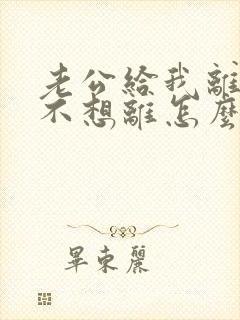 老公給我離
不想離怎麼
畢東麗